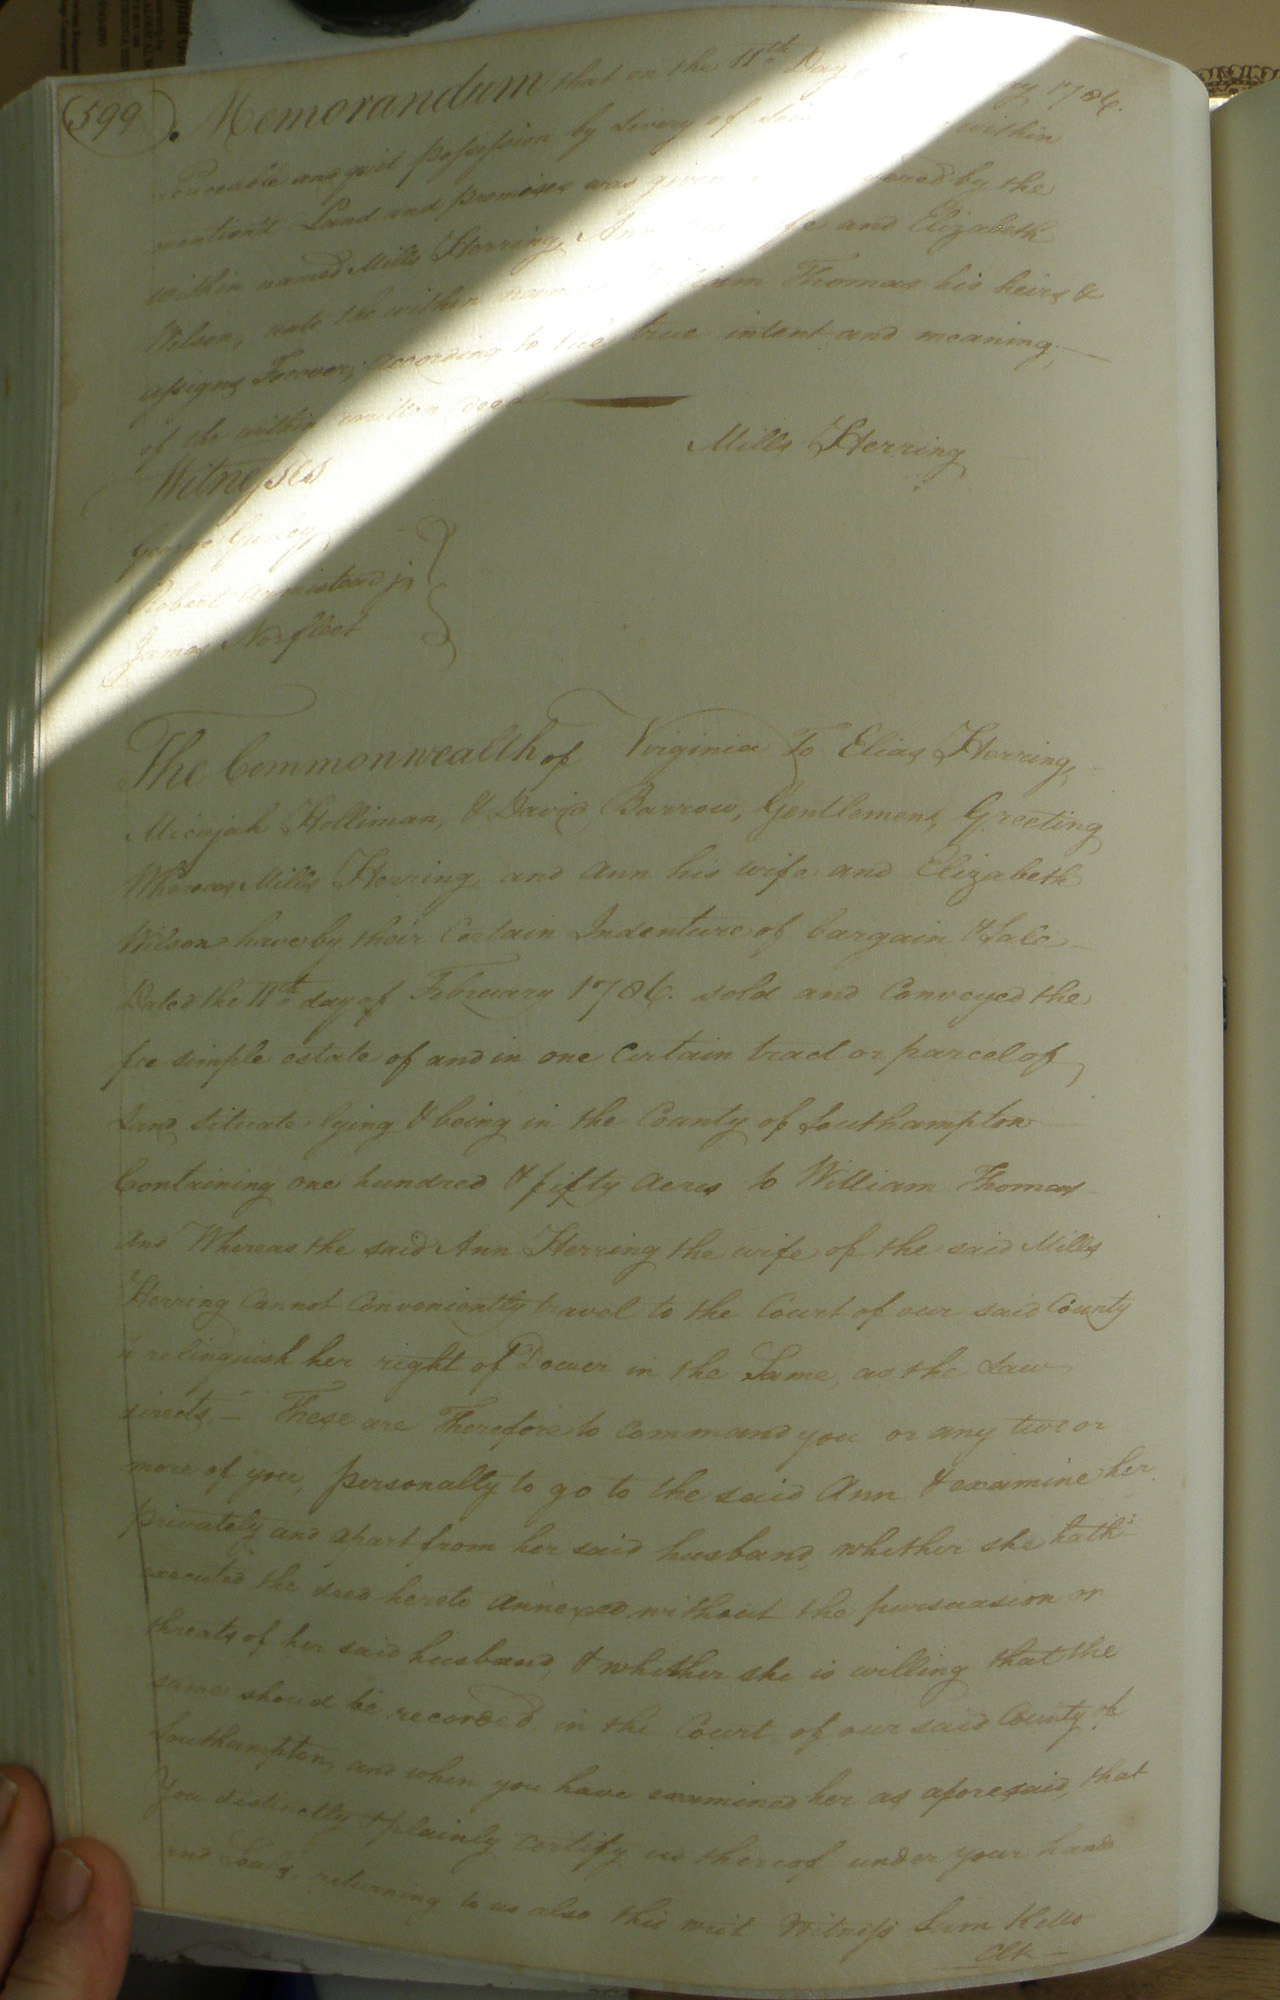 599
Memorandum that on the 11th Day 1786.
Peaceable and quiet possession by livery of within
mention'd Land and premises was given by the
within named Mills Herring, Ann and Elizabeth
Wilson, unto the within William Thomas his heirs &
assigns Forever, according to the true intent and meaning
of the within written deed
Mills Herring
Witnesses
George Gurley
Robert Armistead jr
James Norfleet
The Commonwealth of Virginia To Elias Herring,
Micajah Holliman, & David Barrow, Gentlemen, Greeting
Whereas Mills Herring and Ann his wife and Elizabeth
Wilson have by their Certain Indenture of bargain & Sale
Dated the 11th day of February 1786. sold and Conveyed the
fee simple estate of and in one certain tract or parcel of
Land situate lying & being in the County of Southampton
Containing one hundred & fifty Acres to William Thomas
And Whereas the said Ann Herring the wife of the said Mills
Herring Cannot Conveniently travel to the Court of our said County
to relinquish her right of Dower in the Same, as the Law
directs, – These are Therefore to Command you or any two or
more of you, personally to go to the said Ann & examine her
privately and apart from her said husband, whether she hath
executed the deed hereto Annexed, without the persuasion or
threats of her said husband, & whether she is willing that the
same should be recorded, in the Court of our said County of
Southampton, and when you have examined her as aforesaid, that
You distinctly & plainly certify us thereof under your hand
and Seals, returning to us also this writ Witness Sam Kello
Clk